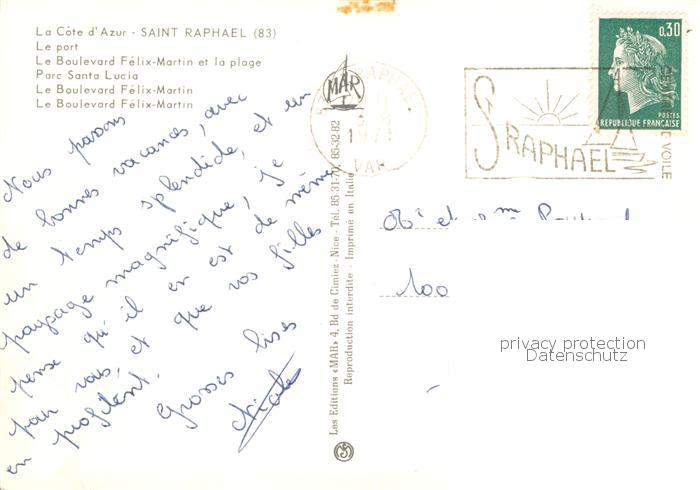 La Côte d'Azur - SAINT RAPHAEL (83)
Le port
Le Boulevard Félix-Martin et la plage
Parc Santa Lucia
Le Boulevard Félix-Martin
Le Boulevard Félix-Martin
Nous passons
de bonnes vacances, avec
un temps splendide, et un
paysage magnifique, je
pense qu'il en est de même
pour vous, et que vos filles
en profitent.
Grosses bises
Nicole
MAR
RAPHAEL
VAR
Les Editions «MAR» 4, Bd de Cimiez - Nice - Tél. 85-32-82
Reproduction interdite - Imprimé en Italie
0,30
POSTES
REPUBLIQUE FRANÇAISE
ST RAPHAEL
DE VOILE
et
100
privacy protection
Datenschutz